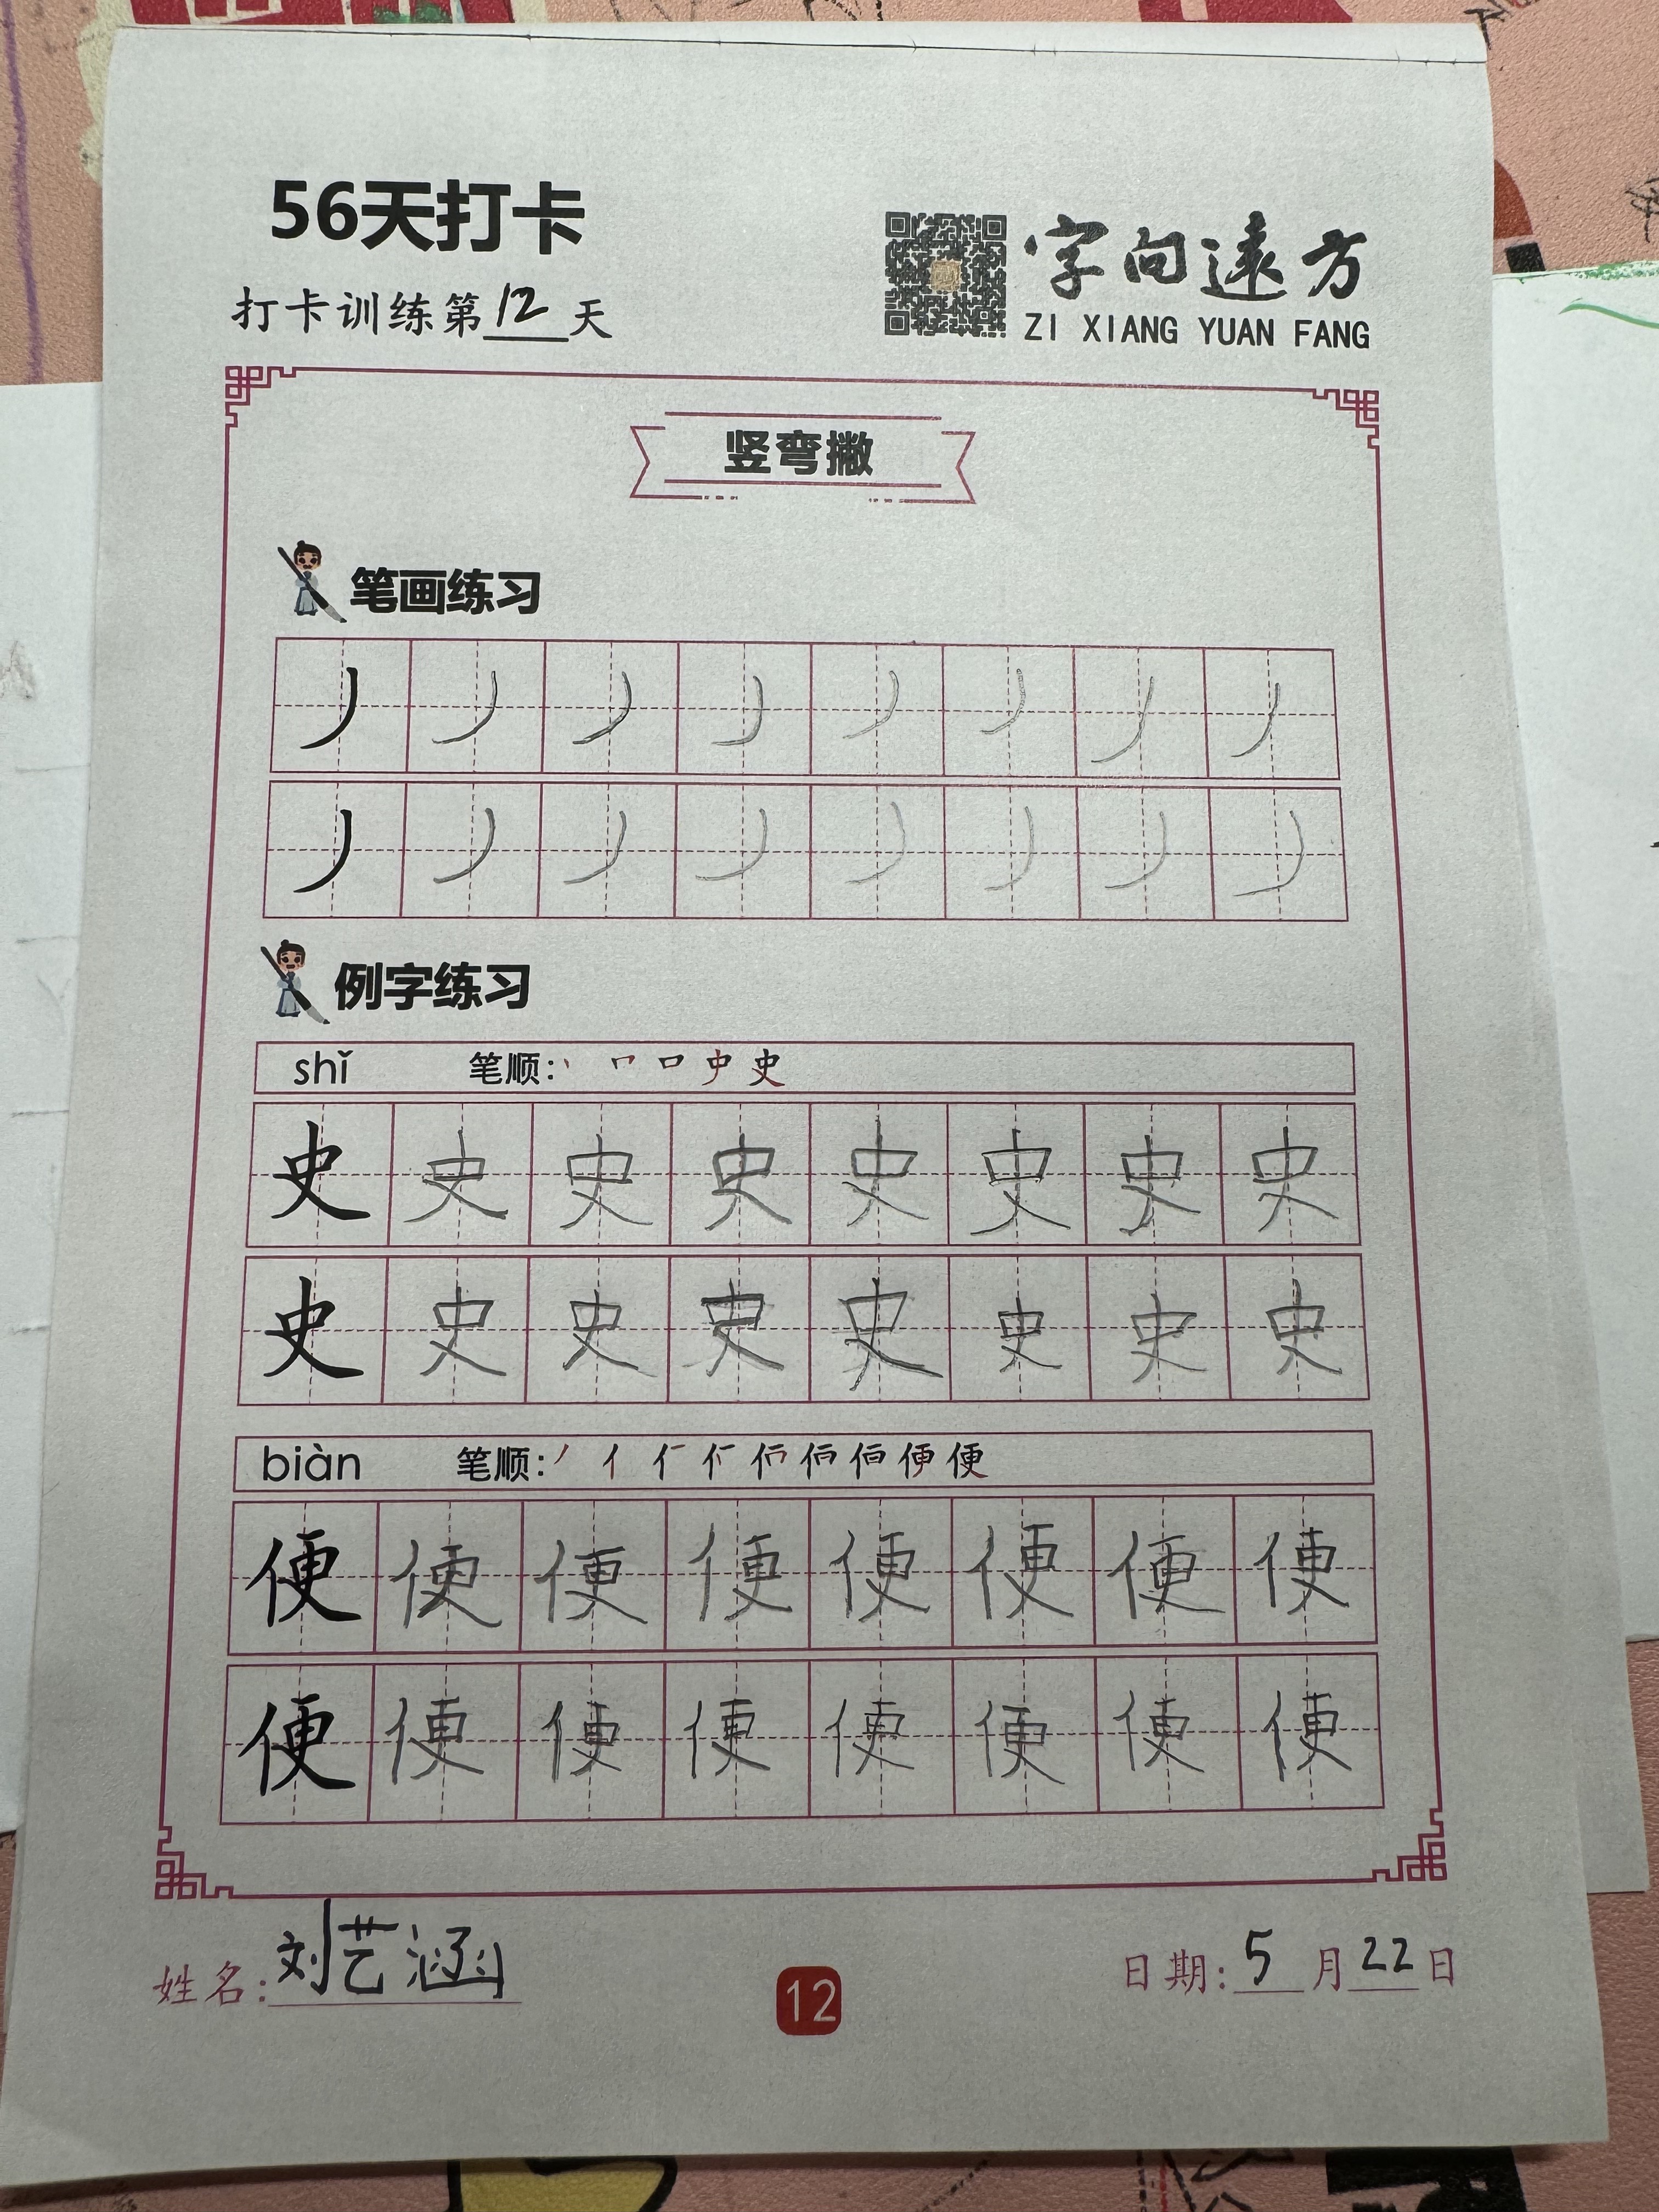 56天打卡
打卡训练第12天
字向遠方
ZI XIANG YUAN FANG
竖弯撇
笔画练习
丿 丿 丿 丿 丿 丿 丿 丿
丿 丿 丿 丿 丿 丿 丿 丿
例字练习
shǐ 笔顺: 史
史 史 史 史 史 史 史 史
史 史 史 史 史 史 史 史
biàn 笔顺: 丿 亻 便
便 便 便 便 便 便 便 便
便 便 便 便 便 便 便 便
姓名: 刘艺涵
12
日期: 5月22日